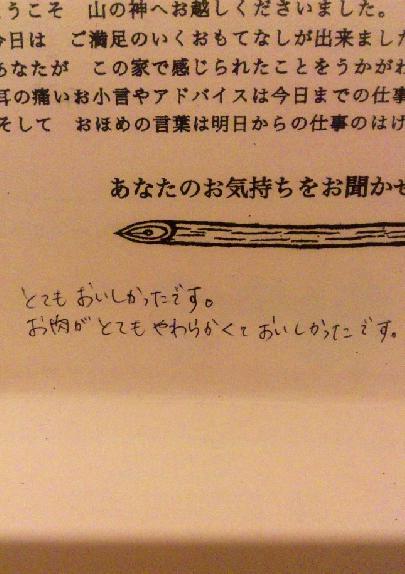 ようこそ 山の神へお越しくださいました。
今日は ご満足のいくおもてなしが出来ました
あなたが この家で感じられたことをうかがわ
耳の痛いお小言やアドバイスは今日までの仕事
そして おほめの言葉は明日からの仕事のはげ
あなたのお気持ちをお聞かせ
とても おいしかったです。
お肉が とても やわらかくて おいしかったです。